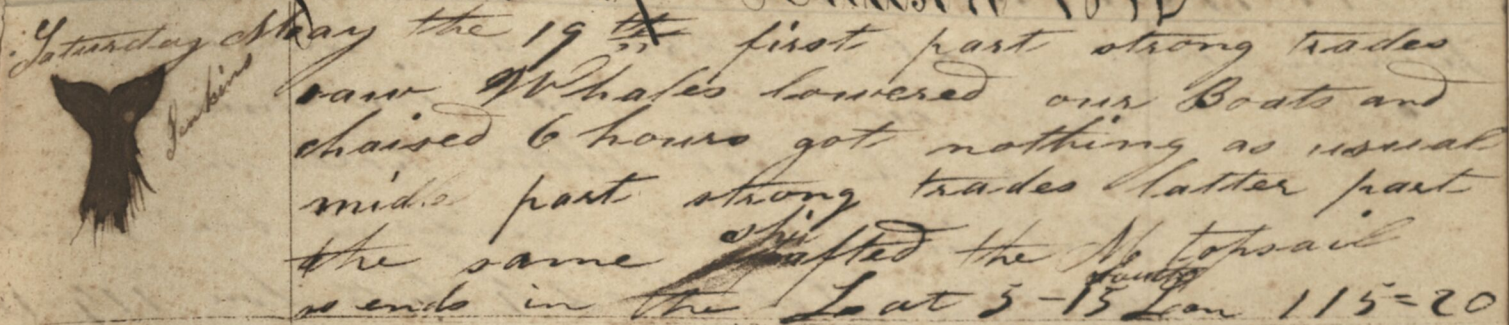 Saturday May the 19th first part strong trades
Jenkins
saw Whales lowered our Boats and
chaised 6 hours got nothing as usual
midle part strong trades latter part
the same shifted the M topsail
so ends in the Lat 5-15 South Lon 115=20